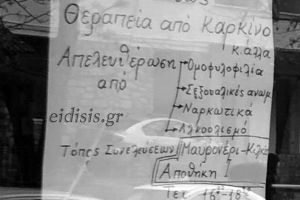 Θεραπεία από Καρκίνο
κ.αλλα
Απελευθέρωση
από
Ομοφυλοφιλία
Σεξουαλικές ανωμ
Ναρκωτικά
Αλκοολισμό
eidisis.gr
Τόπος Συνελεύσεων Μαυρονέρι-Κιλκ
Αποθήκη
Τετ.